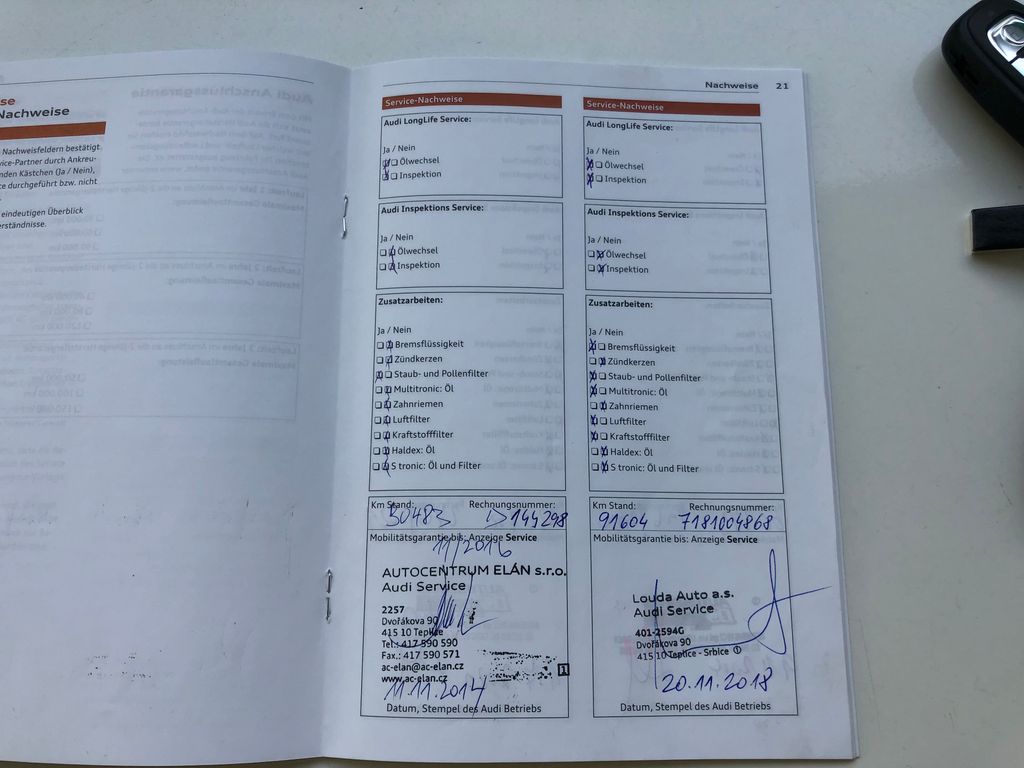 se
Nachweise
Nachweisfeldern bestätigt
vice-Partner durch Ankreu-
nden Kästchen (Ja / Nein),
te durchgeführt bzw. nicht
eindeutigen Überblick
erständnisse.
Nachweise 21
Service-Nachweise
Audi LongLife Service:
Ja / Nein
Ölwechsel
Inspektion
Audi Inspektions Service:
Ja / Nein
Ölwechsel
Inspektion
Zusatzarbeiten:
Ja / Nein
Bremsflüssigkeit
Zündkerzen
Staub- und Pollenfilter
Multitronic: Öl
Zahnriemen
Luftfilter
Kraftstofffilter
Haldex: Öl
S tronic: Öl und Filter
Km Stand: Rechnungsnummer:
30483 D144298
Mobilitätsgarantie bis: Anzeige Service
11/2016
AUTOCENTRUM ELÁN s.r.o.
Audi Service
2257
Dvořákova 90
415 10 Teplice
Tel.: 417 590 590
Fax.: 417 590 571
ac-elan@ac-elan.cz
www.ac-elan.cz
11.11.2014
Datum, Stempel des Audi Betriebs
Service-Nachweise
Audi LongLife Service:
Ja / Nein
Ölwechsel
Inspektion
Audi Inspektions Service:
Ja / Nein
Ölwechsel
Inspektion
Zusatzarbeiten:
Ja / Nein
Bremsflüssigkeit
Zündkerzen
Staub- und Pollenfilter
Multitronic: Öl
Zahnriemen
Luftfilter
Kraftstofffilter
Haldex: Öl
S tronic: Öl und Filter
Km Stand: Rechnungsnummer:
91604 7181004868
Mobilitätsgarantie bis: Anzeige Service
Louda Auto a.s.
Audi Service
401-2594G
Dvořákova 90
415 10 Teplice - Srbice
20.11.2018
Datum, Stempel des Audi Betriebs